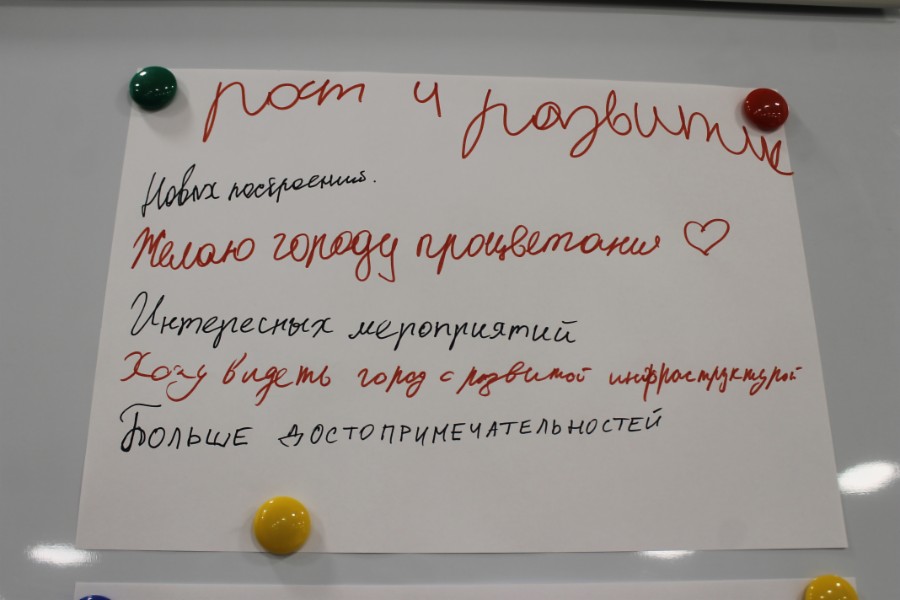 рост и развитие
Новых построений.
Желаю городу процветания ♡
Интересных мероприятий
Хочу видеть город с развитой инфраструктурой
Больше достопримечательностей